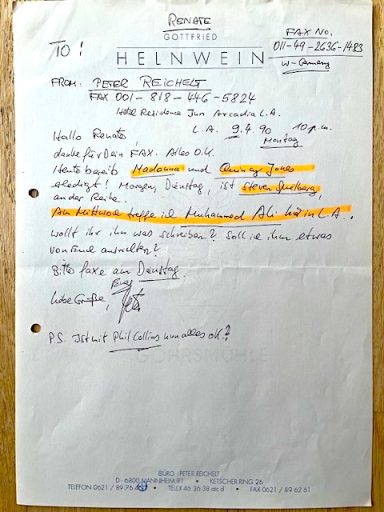 RENATE
GOTTFRIED
TO: HELNWEIN
FAX NO.
011-49-2636-1483
W-Germany
FROM: PETER REICHELT
FAX 001-818-446-5824
Hotel Residence Inn Arcadia L.A.
L.A. 9.4.90 10 p.m.
Montag
Hallo Renate,
danke für Dein FAX. Alles O.K.
Heute bereits Madonna und Quincy Jones
erledigt! Morgen, Dienstag, ist Steven Spielberg,
an der Reihe.
Am Mittwoch treffe ich Muhammed Ali hier in L.A.
wollt ihr ihm was schreiben? Soll ich ihm etwas
von Euch ausrichten?
Bitte faxe am Dienstag.
Euer
liebe Grüße, Peter
P.S. Ist mit Phil Collins nun alles ok?
BÜRO: PETER REICHELT
D - 6800 MANNHEIM 71 • KETSCHER RING 26
TELEFON 0621 / 89 76 • TELEX 46 36 38 atc d • FAX 0621 / 89 62 61